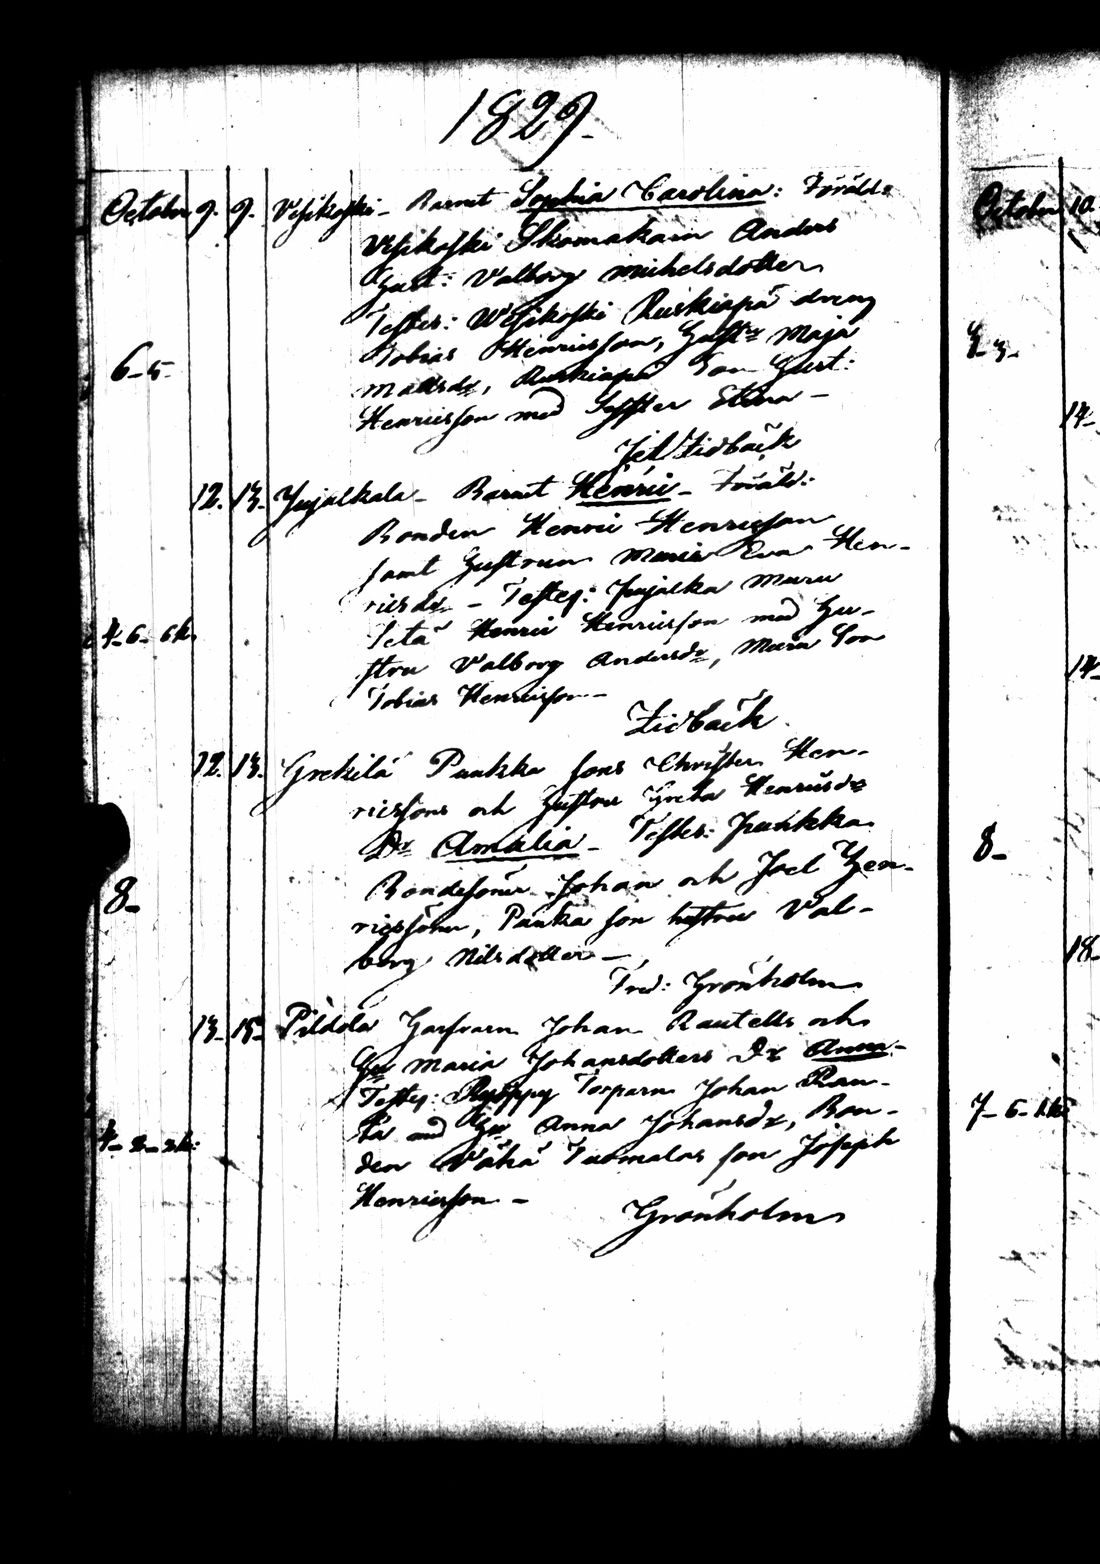 1829.
October 9. 9. Vesikoski - Barnet Sophia Carolina: Föräld:
Vesikoski Skomakarn Anders
Hust: Valborg Michelsdotter
Testes: Wesikoski Ruskiapä dreng
Tobias Henricsson, Hustr Maja
Mattsdr, Ruskiapä Son Gust:
6-5- Henricsson med Syster Stina -
Lidbäck
12. 13. Jujalkala - Barnet Henric - Föräld:
Bonden Henric Henricsson
samt Hustrun Maria Eva Hen-
ricsdr - Testes: Jujalka Muru
4-6-6k. Henric Henricsson med Hu-
stru Valborg Andersdr, Muru Son
Tobias Henricsson -
Lidbäck
12. 13. Grekilä Paukka sons Christer Hen-
ricssons och Hustru Greta Henricsdr
Dr Amalia - Testes: Paukka
Bondesöner Johan och Joel Hen-
8- ricssöner, Pauka son hustru Val-
borg Nilsdotter -
Fred: Grönholm
13. 15. Pildola Johan Rautells och
Hu Maria Johansdotters Dr Anna -
Testes: Torparn Johan Rau-
ta med Hu Anna Johansdr, Bon-
4-2-2k: den Vähä Tuomalas son Joseph
Henricsson -
Grönholm
October 10.
3-3-
14-
14-
8-
18-
7-6-